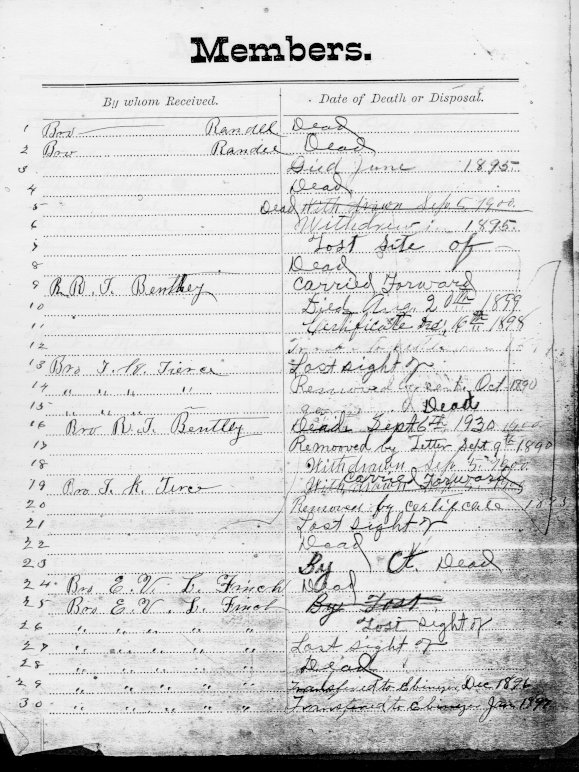 Members.
By whom Received. Date of Death or Disposal.
1 Bro Randel Dead
2 Bro Randel Dead
3 Died June 1895
4 Dead
5 Dead Withdrawn Sep 5, 1900
6 Withdrew 1895
7 Lost Site of
8 Dead
9 R. T. Bentley Carried Forward
10 Died Aug. 20th 1899
11 Certificate 16th 1898
12
13 Bro T. W. Tierce Lost sight of
14 " " " " Removed Oct. 1890
15 " " " " Dead
16 Bro R. T. Bentley Dead Sept 6th, 1930 1900
17 Remooved by Letter Sept 9th 1890
18 Withdrawn Sep. 5. 1900
19 Bro T. K. Tirce Withdrawn Carried Forward
20 Removed by certificate
21 Lost sight of
22 Dead
23 By Ct. Dead
24 Bro E. V. L. Finch Dead
25 Bro E. V. L. Finch By Lost
26 " " " " " Lost sight of
27 " " " " " Lost sight of
28 " " " " " Dead
29 " " " " " Transfered to Ebinezer Dec 1896
30 " " " " " Transfered to Ebinezer Jan 1897